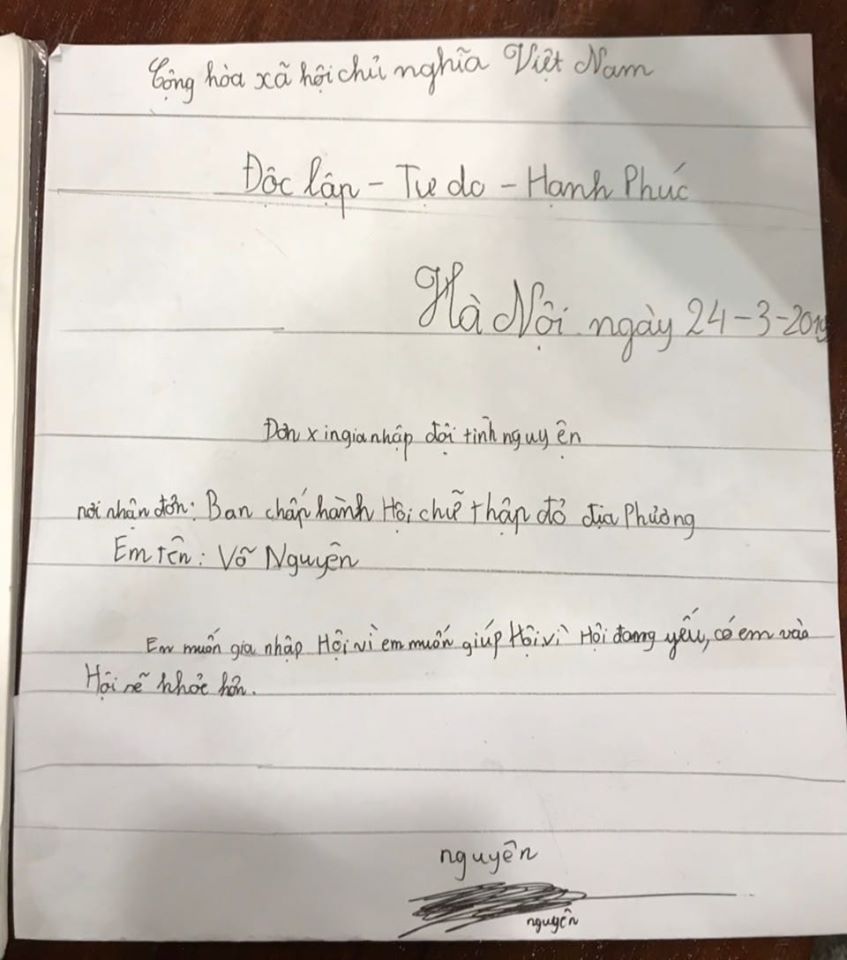 Cộng hòa xã hội chủ nghĩa Việt Nam
Độc lập - Tự do - Hạnh Phúc
Hà Nội ngày 24-3-2019
Đơn xin gia nhập đội tình nguyện
nơi nhận đơn: Ban chấp hành Hội chữ thập đỏ địa Phương
Em tên: Võ Nguyên
Em muốn gia nhập Hội vì em muốn giúp Hội vì Hội đang yếu, có em vào
Hội sẽ khỏe hơn.
nguyên
nguyên